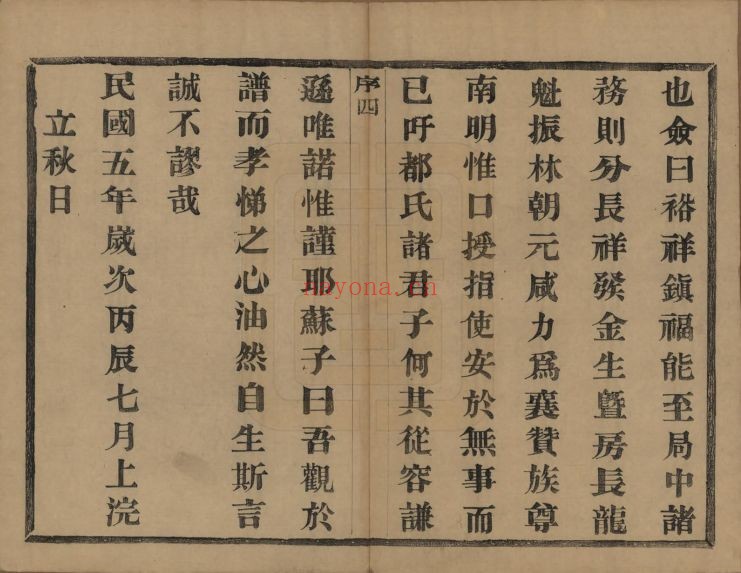 也僉曰裕祥鎮福能至局中諸
務則分長祥發金生暨房長龍
魁振林朝元咸力爲襄贊族尊
南明惟口授指使安於無事而
已吁都氏諸君子何其從容謙
序四
遜唯諾惟謹耶蘇子曰吾觀於
譜而孝悌之心油然自生斯言
誠不謬哉
民國五年歲次丙辰七月上浣
立秋日